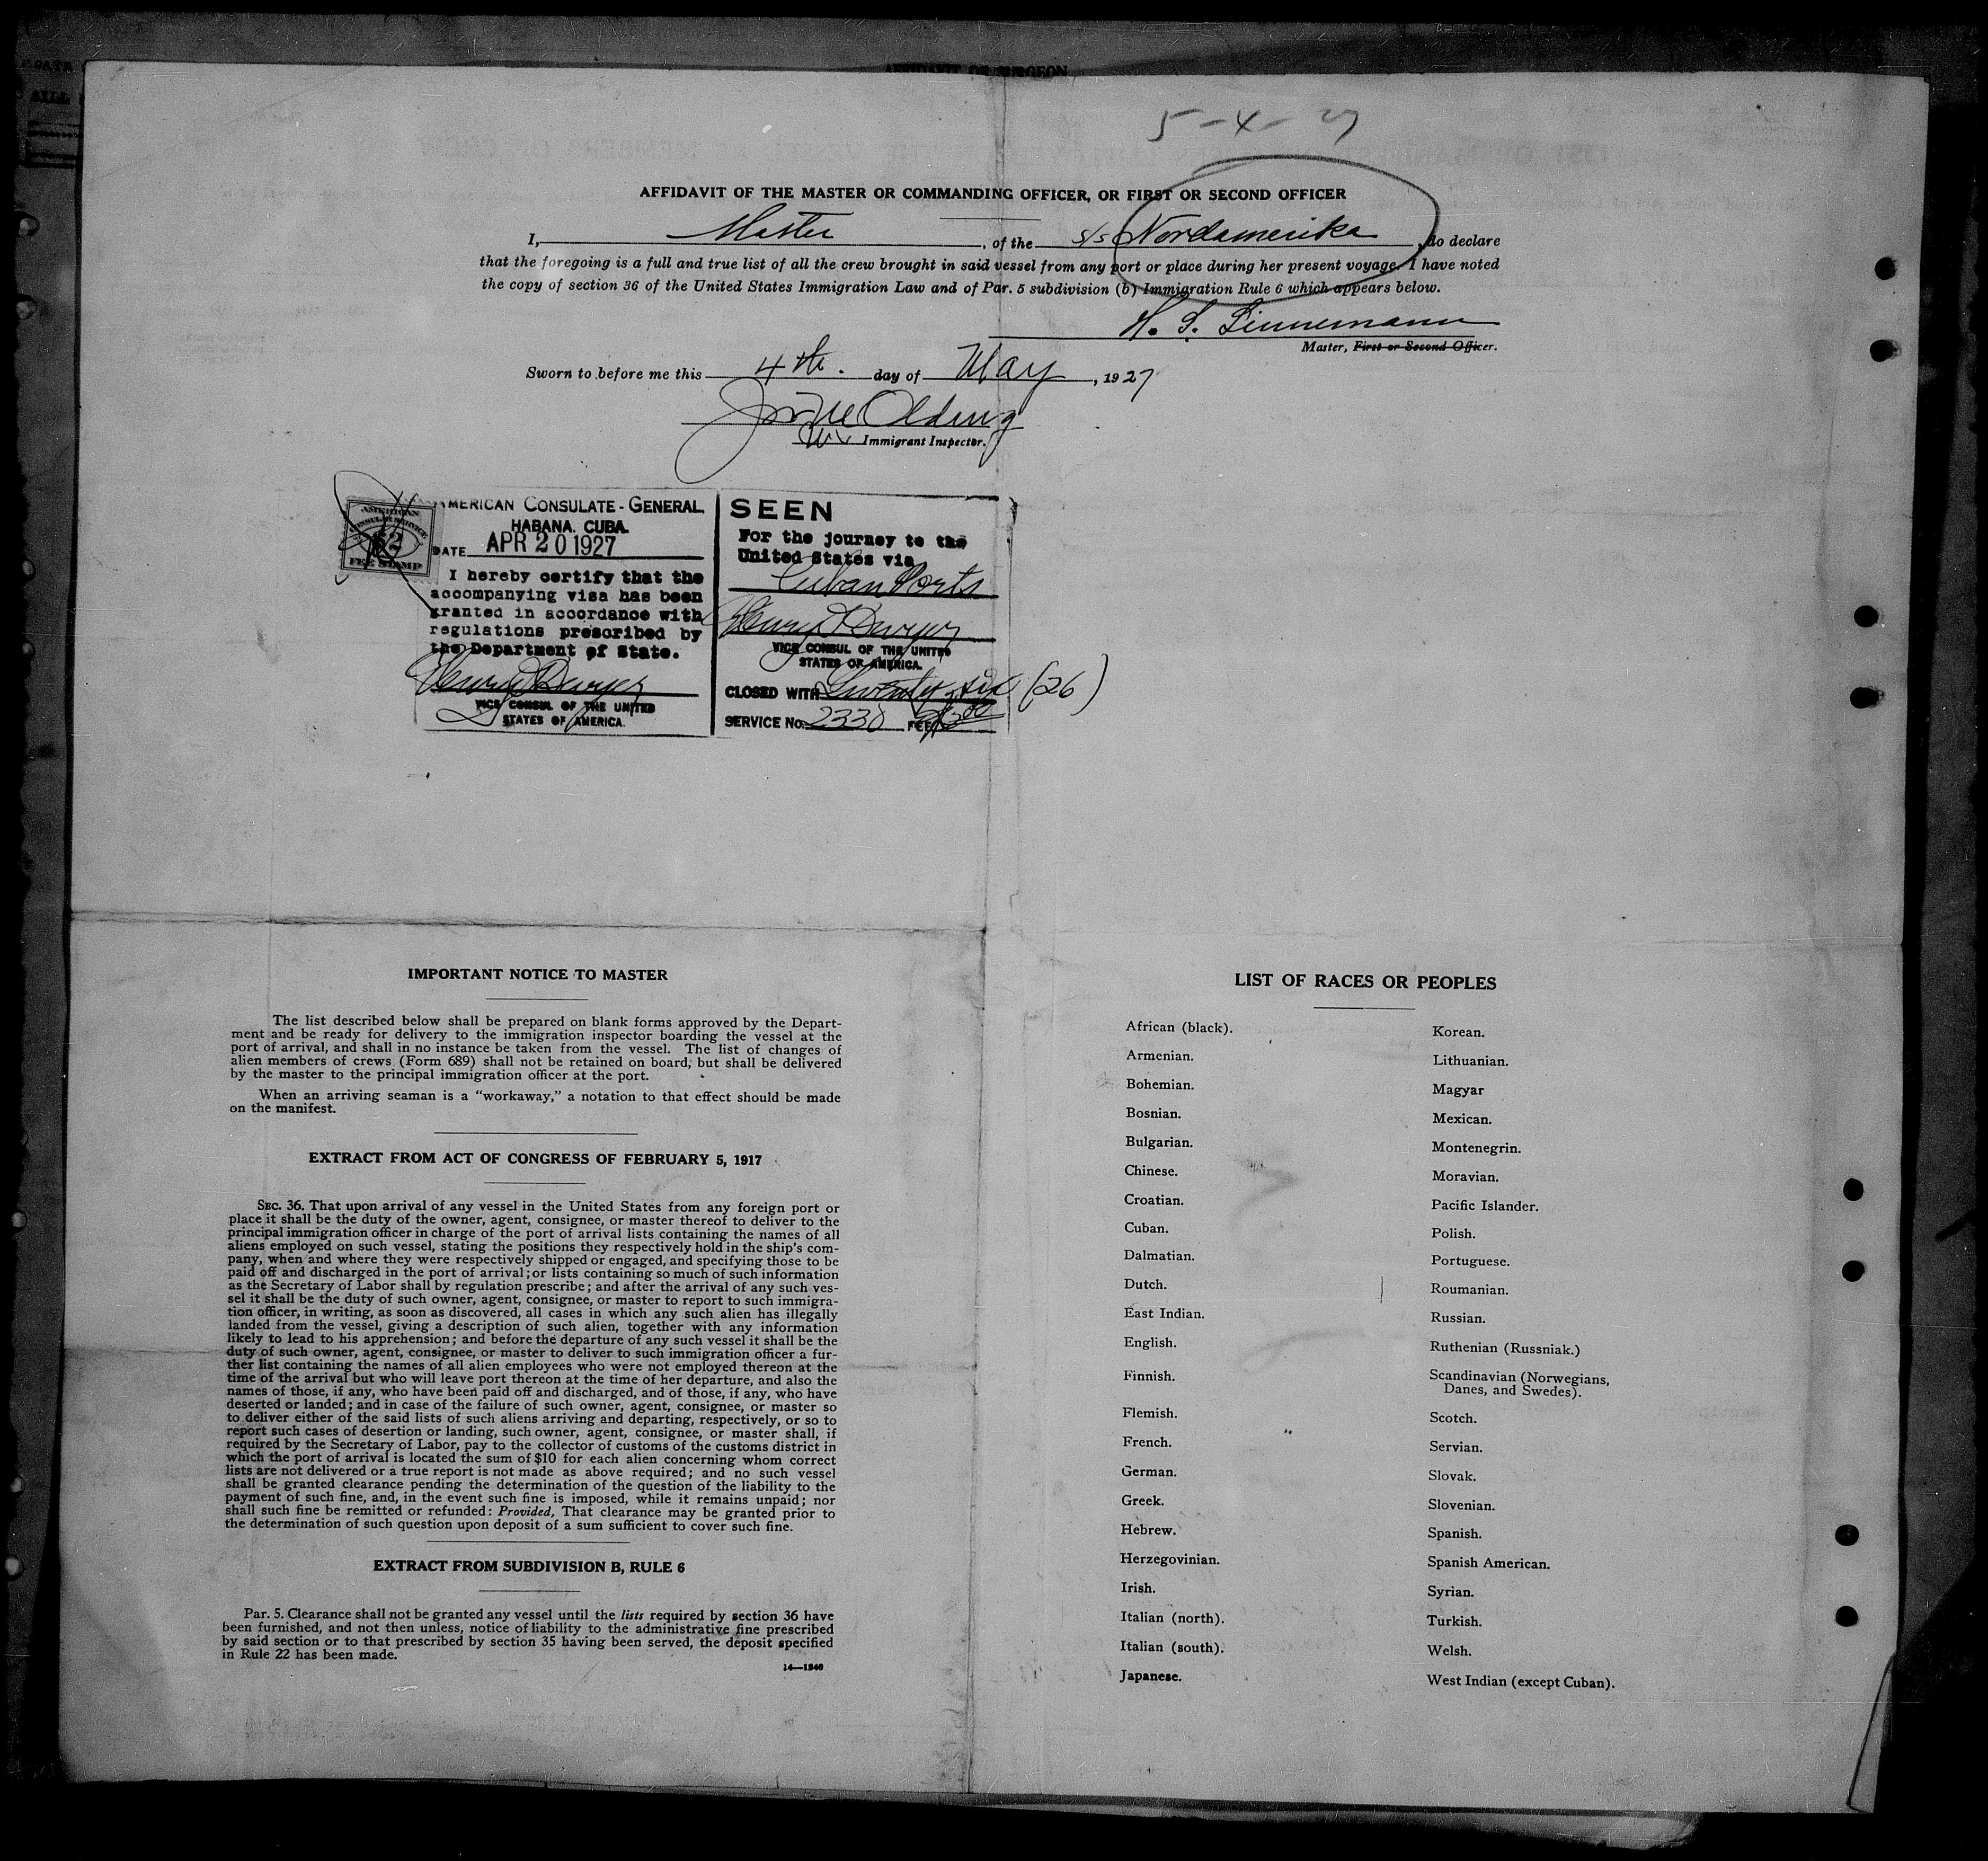 AFFIDAVIT OF SURGEON
5-4-27
AFFIDAVIT OF THE MASTER OR COMMANDING OFFICER, OR FIRST OR SECOND OFFICER
I, Master, of the s/s Nordamerika, do declare
that the foregoing is a full and true list of all the crew brought in said vessel from any port or place during her present voyage. I have noted
the copy of section 36 of the United States Immigration Law and of Par. 5 subdivision (b) Immigration Rule 6 which appears below.
H. S. Linnemann
Master, First or Second Officer.
Sworn to before me this 4th. day of May, 1927
Olding
Immigrant Inspector.
AMERICAN CONSULAR SERVICE
$2
FEE STAMP
AMERICAN CONSULATE-GENERAL,
HABANA. CUBA.
DATE APR 20 1927
I hereby certify that the
accompanying visa has been
granted in accordance with
regulations prescribed by
the Department of State.
Henry Dwyer
VICE CONSUL OF THE UNITED
STATES OF AMERICA.
SEEN
For the journey to the
United States via
Cuban Ports
Henry Dwyer
VICE CONSUL OF THE UNITED
STATES OF AMERICA.
CLOSED WITH Twenty six (26)
SERVICE No. 2330 FEE
IMPORTANT NOTICE TO MASTER
The list described below shall be prepared on blank forms approved by the Depart-
ment and be ready for delivery to the immigration inspector boarding the vessel at the
port of arrival, and shall in no instance be taken from the vessel. The list of changes of
alien members of crews (Form 689) shall not be retained on board, but shall be delivered
by the master to the principal immigration officer at the port.
When an arriving seaman is a "workaway," a notation to that effect should be made
on the manifest.
EXTRACT FROM ACT OF CONGRESS OF FEBRUARY 5, 1917
SEC. 36. That upon arrival of any vessel in the United States from any foreign port or
place it shall be the duty of the owner, agent, consignee, or master thereof to deliver to the
principal immigration officer in charge of the port of arrival lists containing the names of all
aliens employed on such vessel, stating the positions they respectively hold in the ship's com-
pany, when and where they were respectively shipped or engaged, and specifying those to be
paid off and discharged in the port of arrival; or lists containing so much of such information
as the Secretary of Labor shall by regulation prescribe; and after the arrival of any such ves-
sel it shall be the duty of such owner, agent, consignee, or master to report to such immigra-
tion officer, in writing, as soon as discovered, all cases in which any such alien has illegally
landed from the vessel, giving a description of such alien, together with any information
likely to lead to his apprehension; and before the departure of any such vessel it shall be the
duty of such owner, agent, consignee, or master to deliver to such immigration officer a fur-
ther list containing the names of all alien employees who were not employed thereon at the
time of the arrival but who will leave port thereon at the time of her departure, and also the
names of those, if any, who have been paid off and discharged, and of those, if any, who have
deserted or landed; and in case of the failure of such owner, agent, consignee, or master so
to deliver either of the said lists of such aliens arriving and departing, respectively, or so to
report such cases of desertion or landing, such owner, agent, consignee, or master shall, if
required by the Secretary of Labor, pay to the collector of customs of the customs district in
which the port of arrival is located the sum of $10 for each alien concerning whom correct
lists are not delivered or a true report is not made as above required; and no such vessel
shall be granted clearance pending the determination of the question of the liability to the
payment of such fine, and, in the event such fine is imposed, while it remains unpaid; nor
shall such fine be remitted or refunded: Provided, That clearance may be granted prior to
the determination of such question upon deposit of a sum sufficient to cover such fine.
EXTRACT FROM SUBDIVISION B, RULE 6
Par. 5. Clearance shall not be granted any vessel until the lists required by section 36 have
been furnished, and not then unless, notice of liability to the administrative fine prescribed
by said section or to that prescribed by section 35 having been served, the deposit specified
in Rule 22 has been made.
14—1240
LIST OF RACES OR PEOPLES
African (black).
Armenian.
Bohemian.
Bosnian.
Bulgarian.
Chinese.
Croatian.
Cuban.
Dalmatian.
Dutch.
East Indian.
English.
Finnish.
Flemish.
French.
German.
Greek.
Hebrew.
Herzegovinian.
Irish.
Italian (north).
Italian (south).
Japanese.
Korean.
Lithuanian.
Magyar
Mexican.
Montenegrin.
Moravian.
Pacific Islander.
Polish.
Portuguese.
Roumanian.
Russian.
Ruthenian (Russniak.)
Scandinavian (Norwegians,
Danes, and Swedes).
Scotch.
Servian.
Slovak.
Slovenian.
Spanish.
Spanish American.
Syrian.
Turkish.
Welsh.
West Indian (except Cuban).